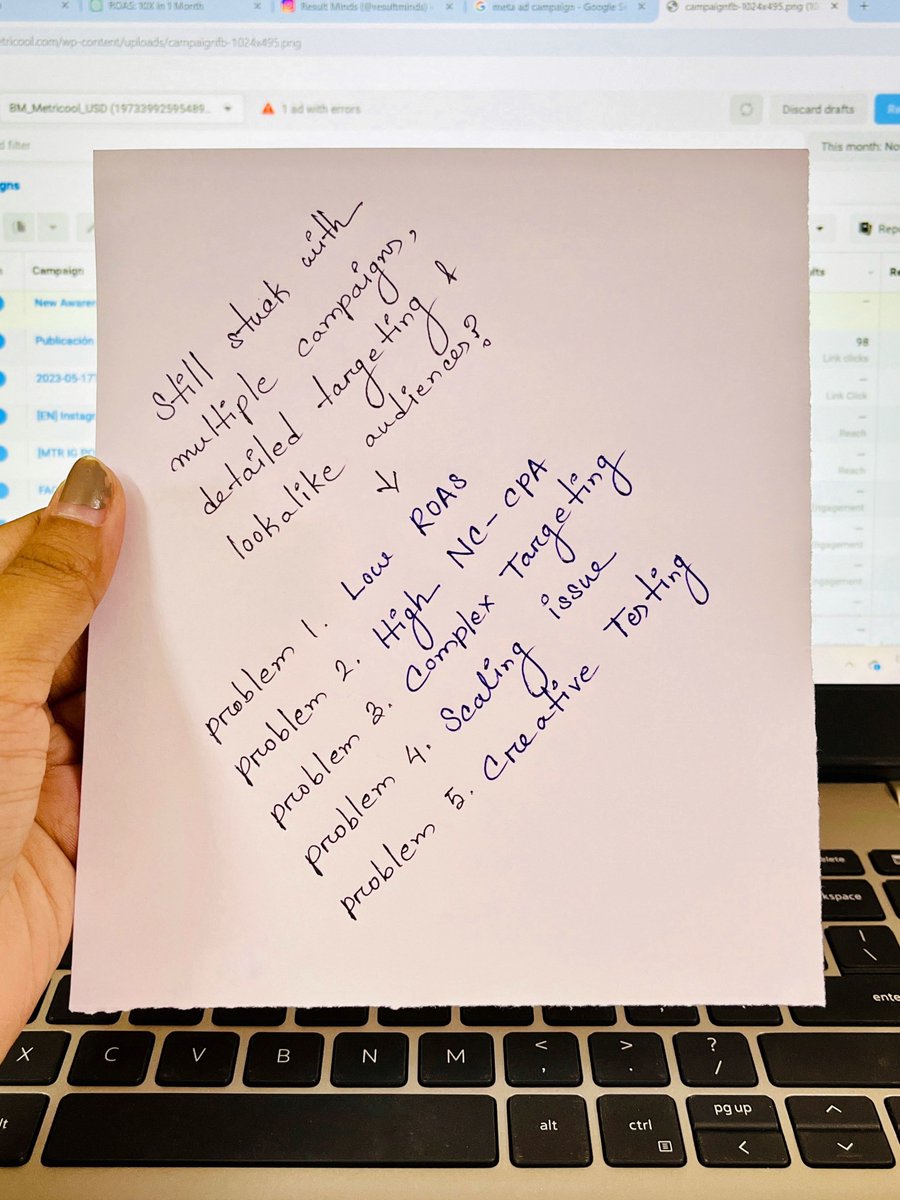 ROAS: 10X in 1 Month
Result Minds (@resultminds) -
meta ad campaign - Google Se
campaignfb-1024x495.png (10
etricool.com/wp-content/uploads/campaignfb-1024x495.png
BM_Metricool_USD (19733992595489...
1 ad with errors
Discard drafts
Re
d filter
This month: No
gns
Repo
Campaign
ults
Re
New Awaren
Publicación
98
Link clicks
2023-05-17T
Link Click
[EN] Instagr
Reach
[MTR IG PO
Reach
FAC
Engagement
Engagement
Engagement
Still stuck with
multiple campaigns,
detailed targeting &
lookalike audiences?
↓
problem 1. Low ROAS
problem 2. High NC-CPA
problem 3. Complex Targeting
problem 4. Scaling issue
problem 5. Creative Testing
delete
kspace
| \
ente
X C V B N M < , > . ? /
lt alt ctrl pg up <